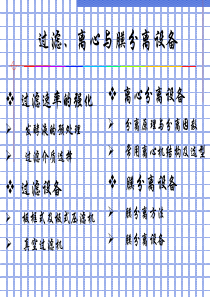 过滤、离心与膜分离设备
❖ 过滤速率的强化
➢ 发酵液的预处理
➢ 过滤介质选择
❖ 过滤设备
➢ 板框式及板式压滤机
➢ 真空过滤机
❖ 离心分离设备
➢ 分离原理与分离因数
➢ 常用离心机结构及选型
❖ 膜分离设备
➢ 膜分离方法
➢ 膜分离设备